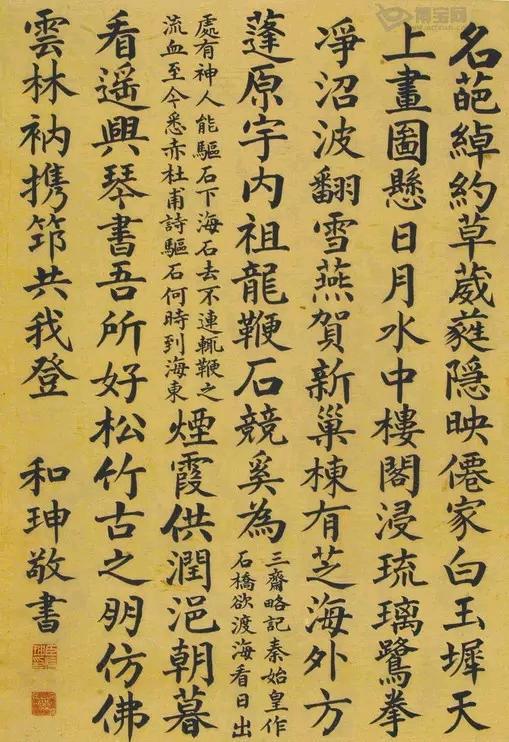 名葩綽約草葳蕤隱映僊家白玉墀天
上畫圖懸日月水中樓閣浸琉璃鷺拳
凈沼波翻雪燕賀新巢棟有芝海外方
蓬原宇内祖龍鞭石競奚為
三齋略記秦始皇作
石橋欲渡海看日出
處有神人能驅石下海石去不速輒鞭之
流血至今悉赤杜甫詩驅石何時到海東
煙霞供潤浥朝暮
看遙興琴書吾所好松竹古之朋仿佛
雲林衲携筇共我登
和珅敬書